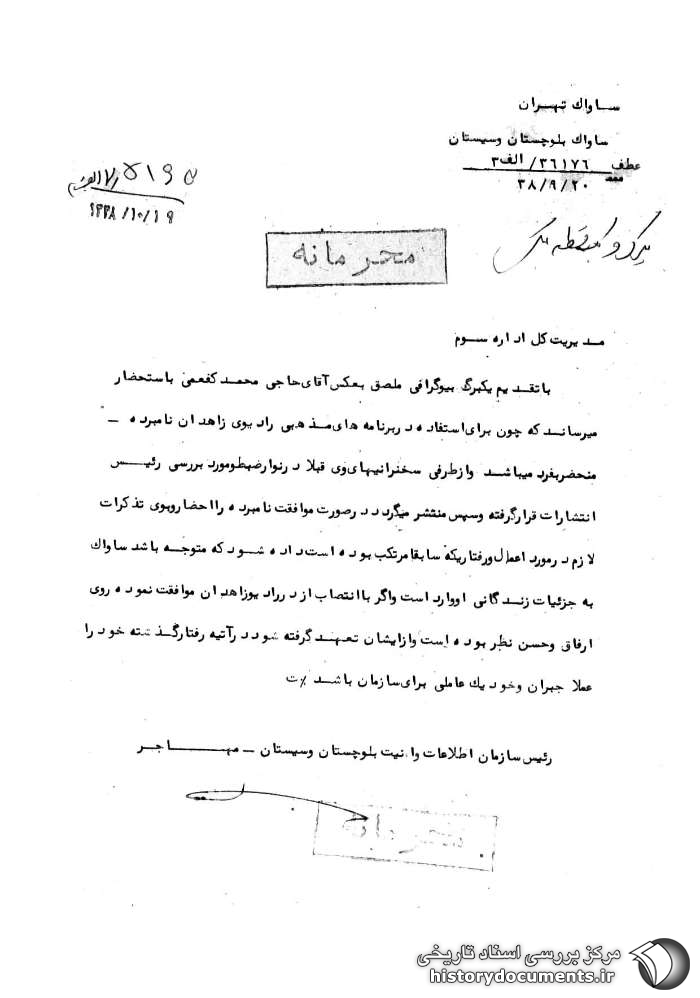 ساواك تهران
ساواك بلوچستان وسیستان
عطف ۳۶۱۷۶/الف۳
۳۸/۹/۲۰
۱۳۳۸/۱۰/۱۹
محرمانه
مدیریت کل اداره سوم
باتقدیم یکبرگ بیوگرافی ملصق بعکس آقای حاجی محمد کفعمی باستحضار
میرساند که چون برای استفاده دربرنامه های مذهبی رادیوی زاهدان نامبرده –
منحضربفرد میباشد وازطرفی سخنرانیهای وی قبلا درنوارضبط ومورد بررسی رئیس
انتشارات قرارگرفته وسپس منتشر میگردد درصورت موافقت نامبرده رااحضاروبوی تذکرات
لازم درمورد اعمال ورفتاریکه سابقا مرتکب بوده است داده شود که متوجه باشد ساواك
به جزئیات زندگانی اووارد است واگر باانتصاب از در رادیوزاهدان موافقت نموده روی
ارفاق وحسن نظر بوده است وازایشان تعهد گرفته شود درآتیه رفتارگذشته خود را
عملا جبران وخود یك عاملی برای سازمان باشد ٪ ت
رئیس سازمان اطلاعات وانیت بلوچستان وسیستان – مهاجر
محرمانه
مرکز بررسی اسناد تاریخی
historydocuments.ir